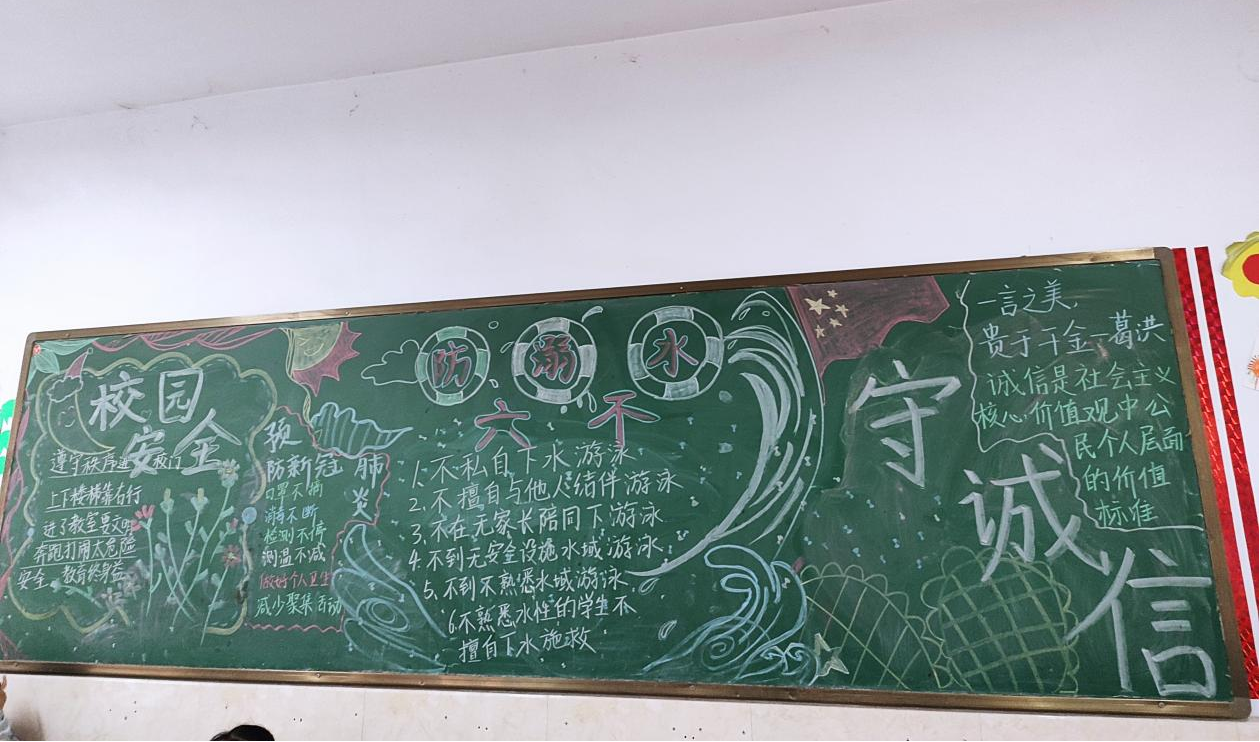 校园
安全
遵守秩序进校门
上下楼梯靠右行
进了教室要文明
奔跑打闹太危险
安全教育终身益
预
防新冠肺
炎
口罩不摘
消毒不断
检测不停
测温不减
做好个人卫生
减少聚集活动
防溺水
六不
1.不私自下水游泳
2.不擅自与他人结伴游泳
3.不在无家长陪同下游泳
4.不到无安全设施水域游泳
5.不到不熟悉水域游泳
6.不熟悉水性的学生不
擅自下水施救
守
诚
信
一言之美,
贵于千金—葛洪
诚信是社会主义
核心价值观中公
民个人层面
的价值
标准